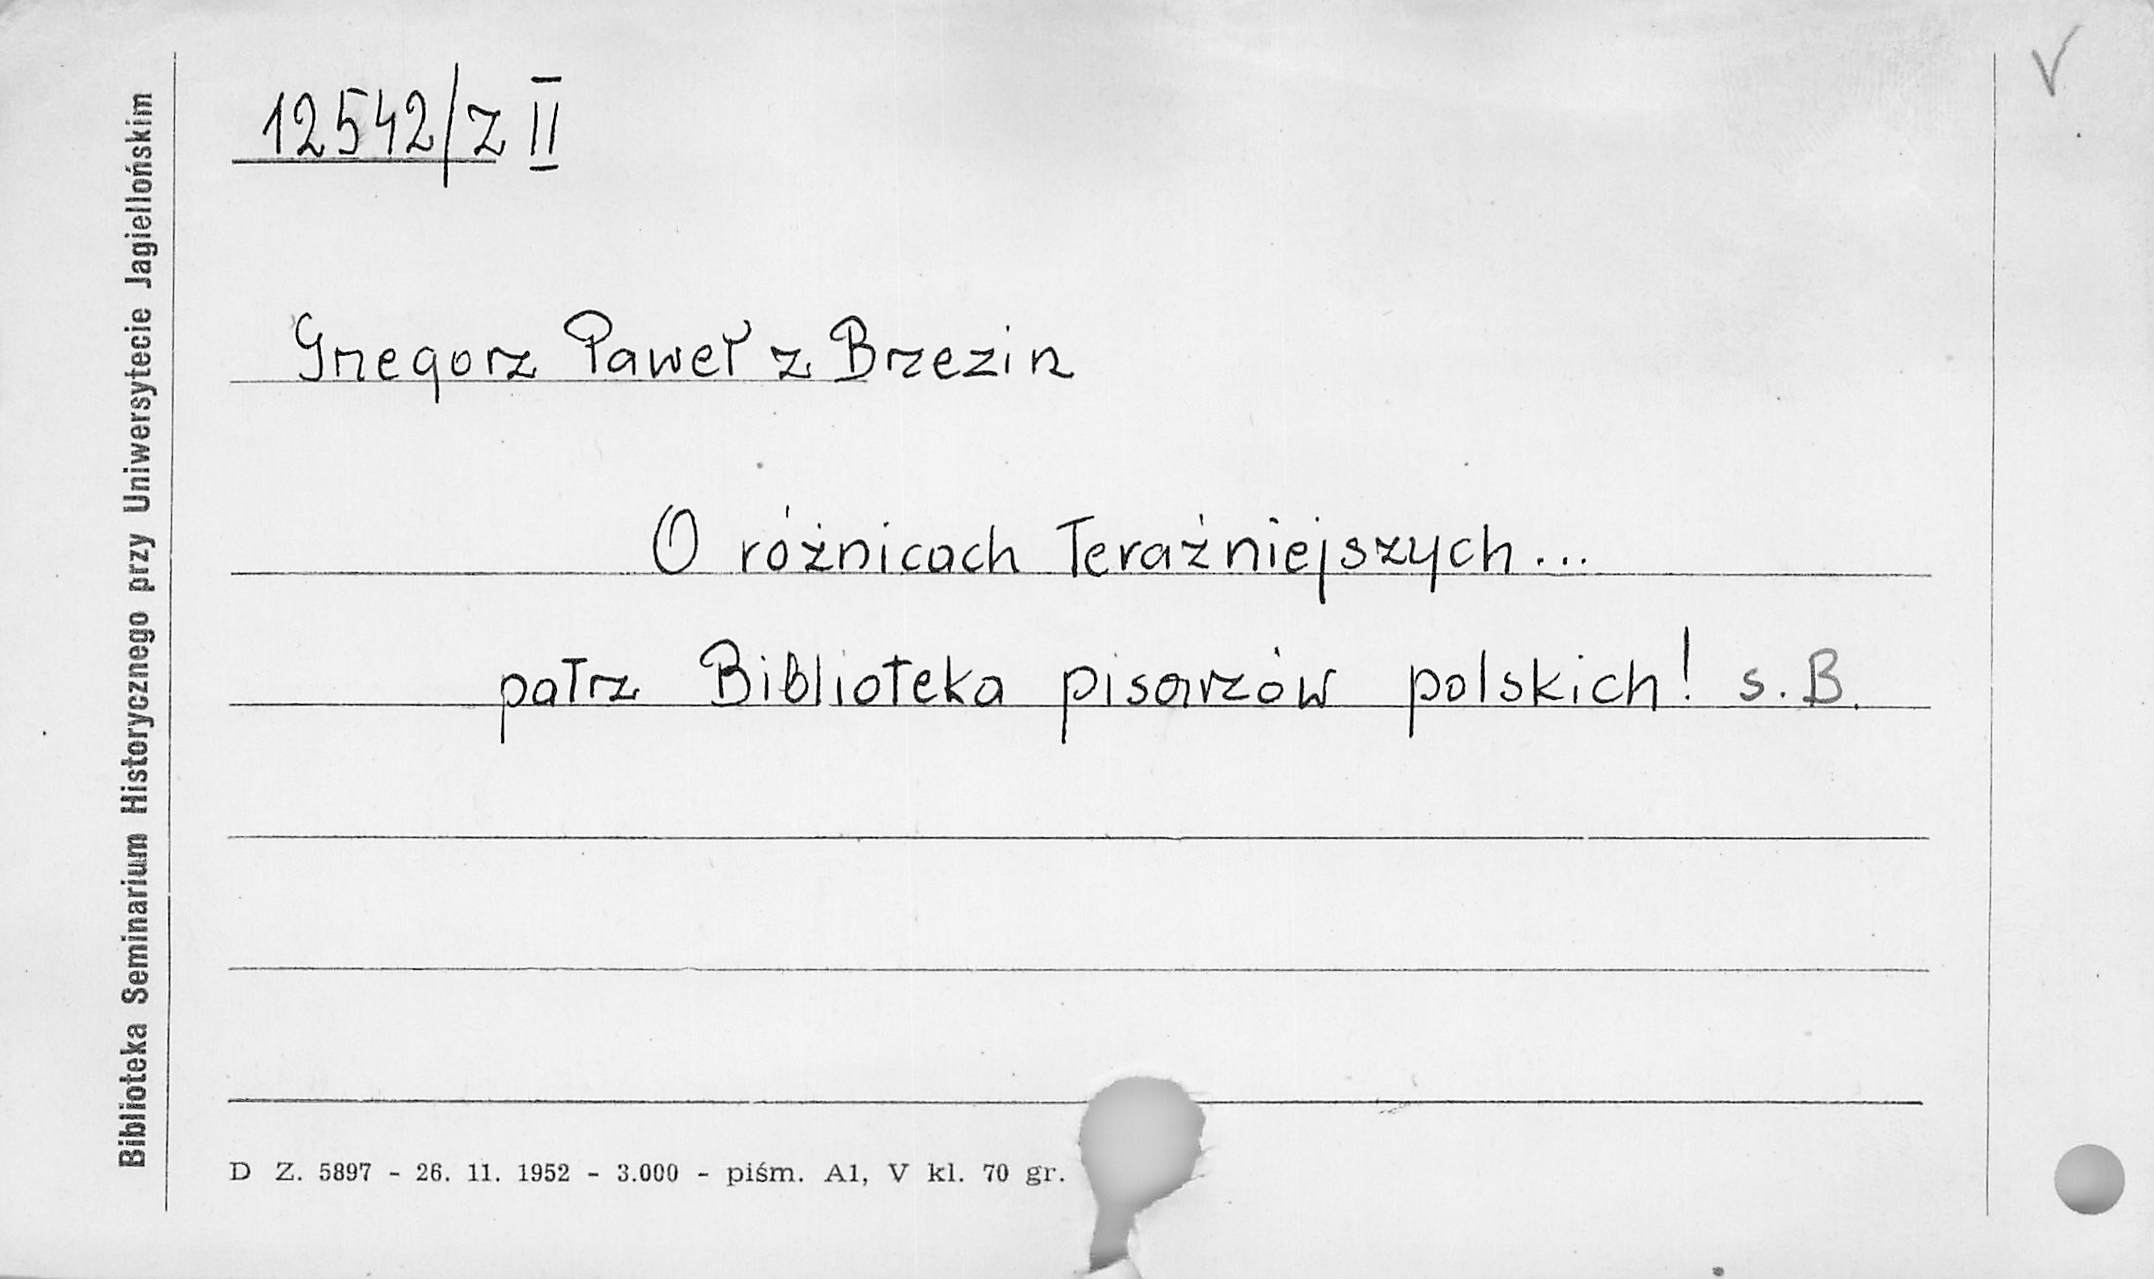 Biblioteka Seminarium Historycznego przy Uniwersytecie Jagiellońskim
V
12542/Z II
Grzegorz Paweł z Brzezin
O różnicach Teraźniejszych...
patrz Biblioteka pisarzów polskich! s. B.
D Z. 5897 - 26. 11. 1952 - 3.000 - piśm. A1, V kl. 70 gr.